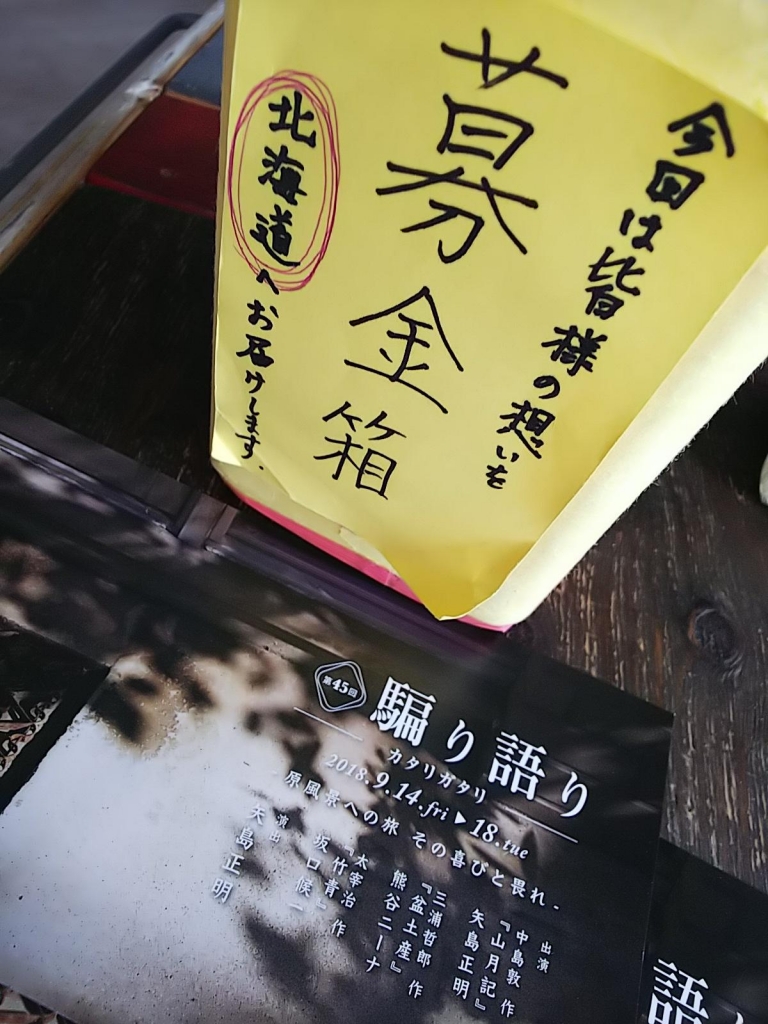 今回は皆様の想いを
募金箱
北海道へお届けします.
第45回
騙り語り
カタリガタリ
2018.9.14.fri▶18.tue
原風景への旅 その喜びと畏れ-
出演
中島敦 作
『山月記』
矢島正明
三浦哲郎 作
『盆土産』
熊谷ニーナ
太宰治 作
『竹青』
坂口候一
演出
矢島正明
語り